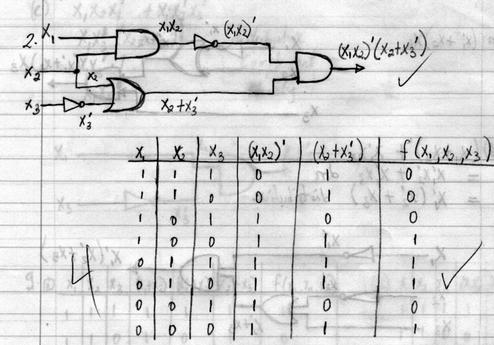 2. x₁ x₁x₂ (x₁x₂)' (x₁x₂)'(x₂+x₃')
x₂ x₂
x₃ x₃' x₂+x₃'
x₁ x₂ x₃ (x₁x₂)' (x₂+x₃') f(x₁,x₂,x₃)
1 1 1 0 1 0
1 1 0 0 1 0
1 0 1 1 0 0
1 0 0 1 1 1
0 1 1 1 1 1
0 1 0 1 1 1
0 0 1 1 0 0
0 0 0 1 1 1
4